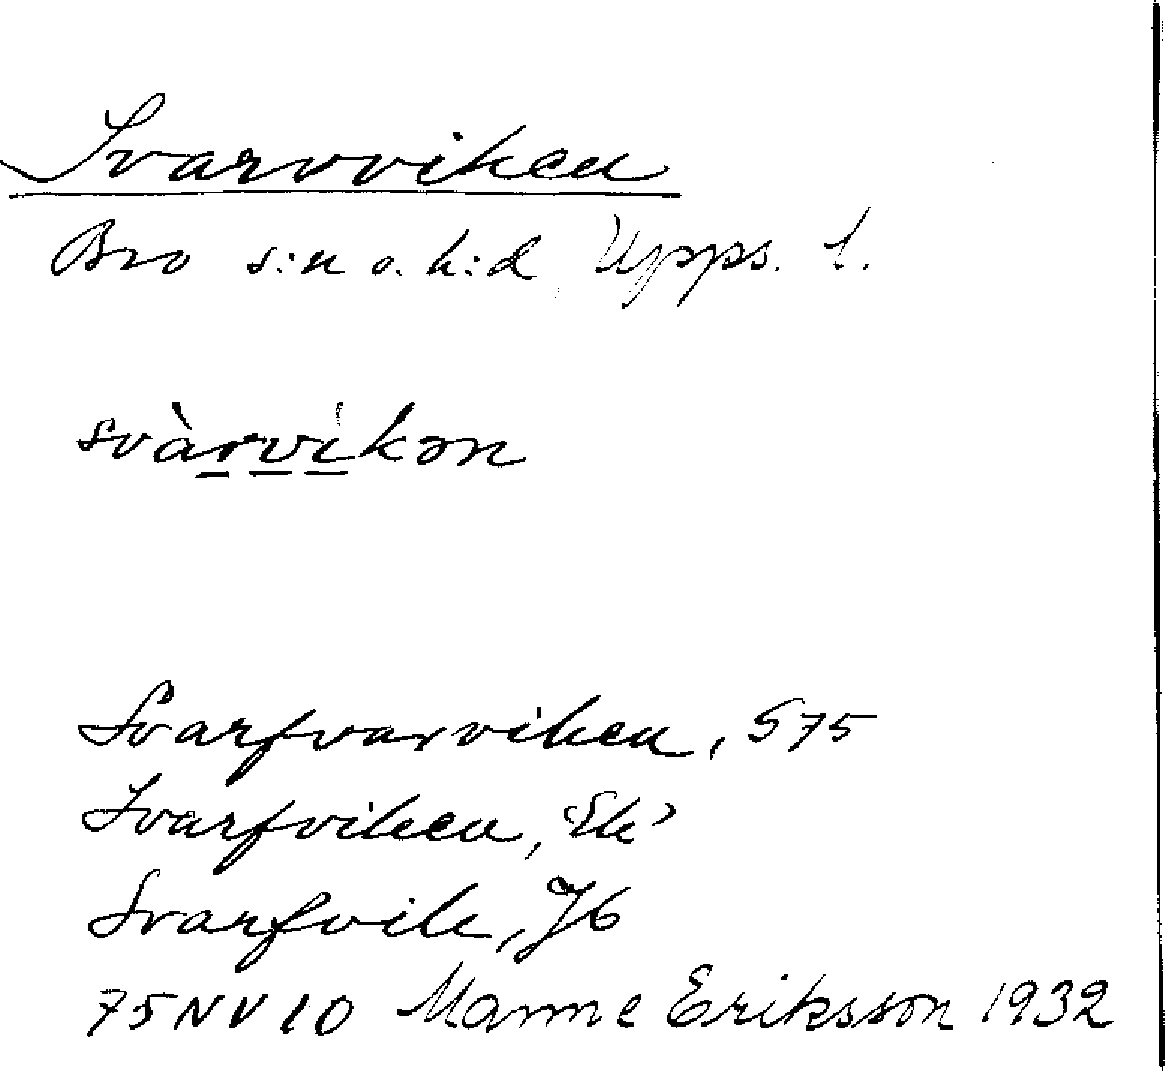 Svarvviken
Bro s:n o. h:d Upps. l.
svàrvikən
Svarfvarviken, S75
Svarfviken, Ek
Svarfvik, Jb
75NV10 Manne Eriksson 1932